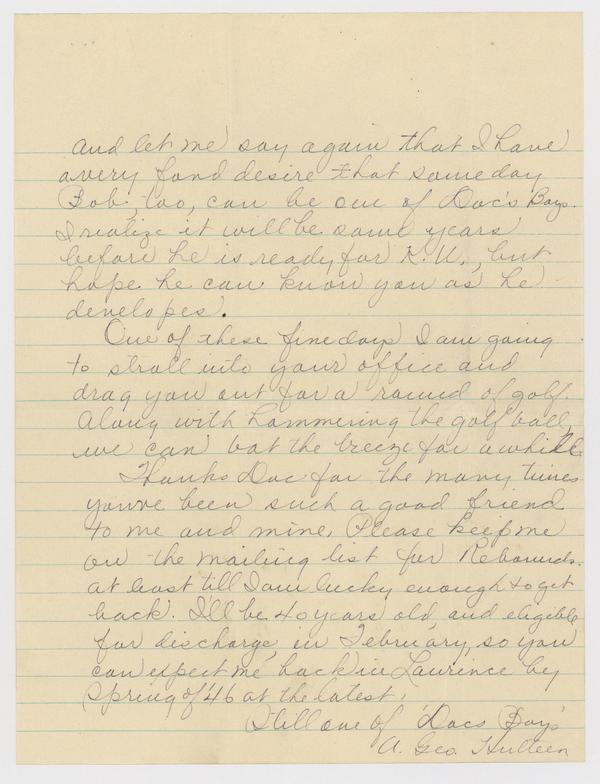 and let me say again that I have
a very fond desire that someday
Bob, too, can be one of Doc's Boys.
I realize it will be some years
before he is ready for K.U., but
hope he can know you as he
developes.
One of these fine days I am going
to stroll into your office and
drag you out for a round of golf.
Along with hammering the golf ball,
we can bat the breeze for a while
Thanks Doc for the many times
you've been such a good friend
to me and mine. Please keep me
on the mailing list for Rebounds.
at least 'till I am lucky enough to get
back. I'll be 40 years old, and eligible
for discharge, in February, so you
can expect me back in Lawrence by
Spring of '46 at the latest.
Still one of 'Docs Boys'
A. Geo. Hulteen